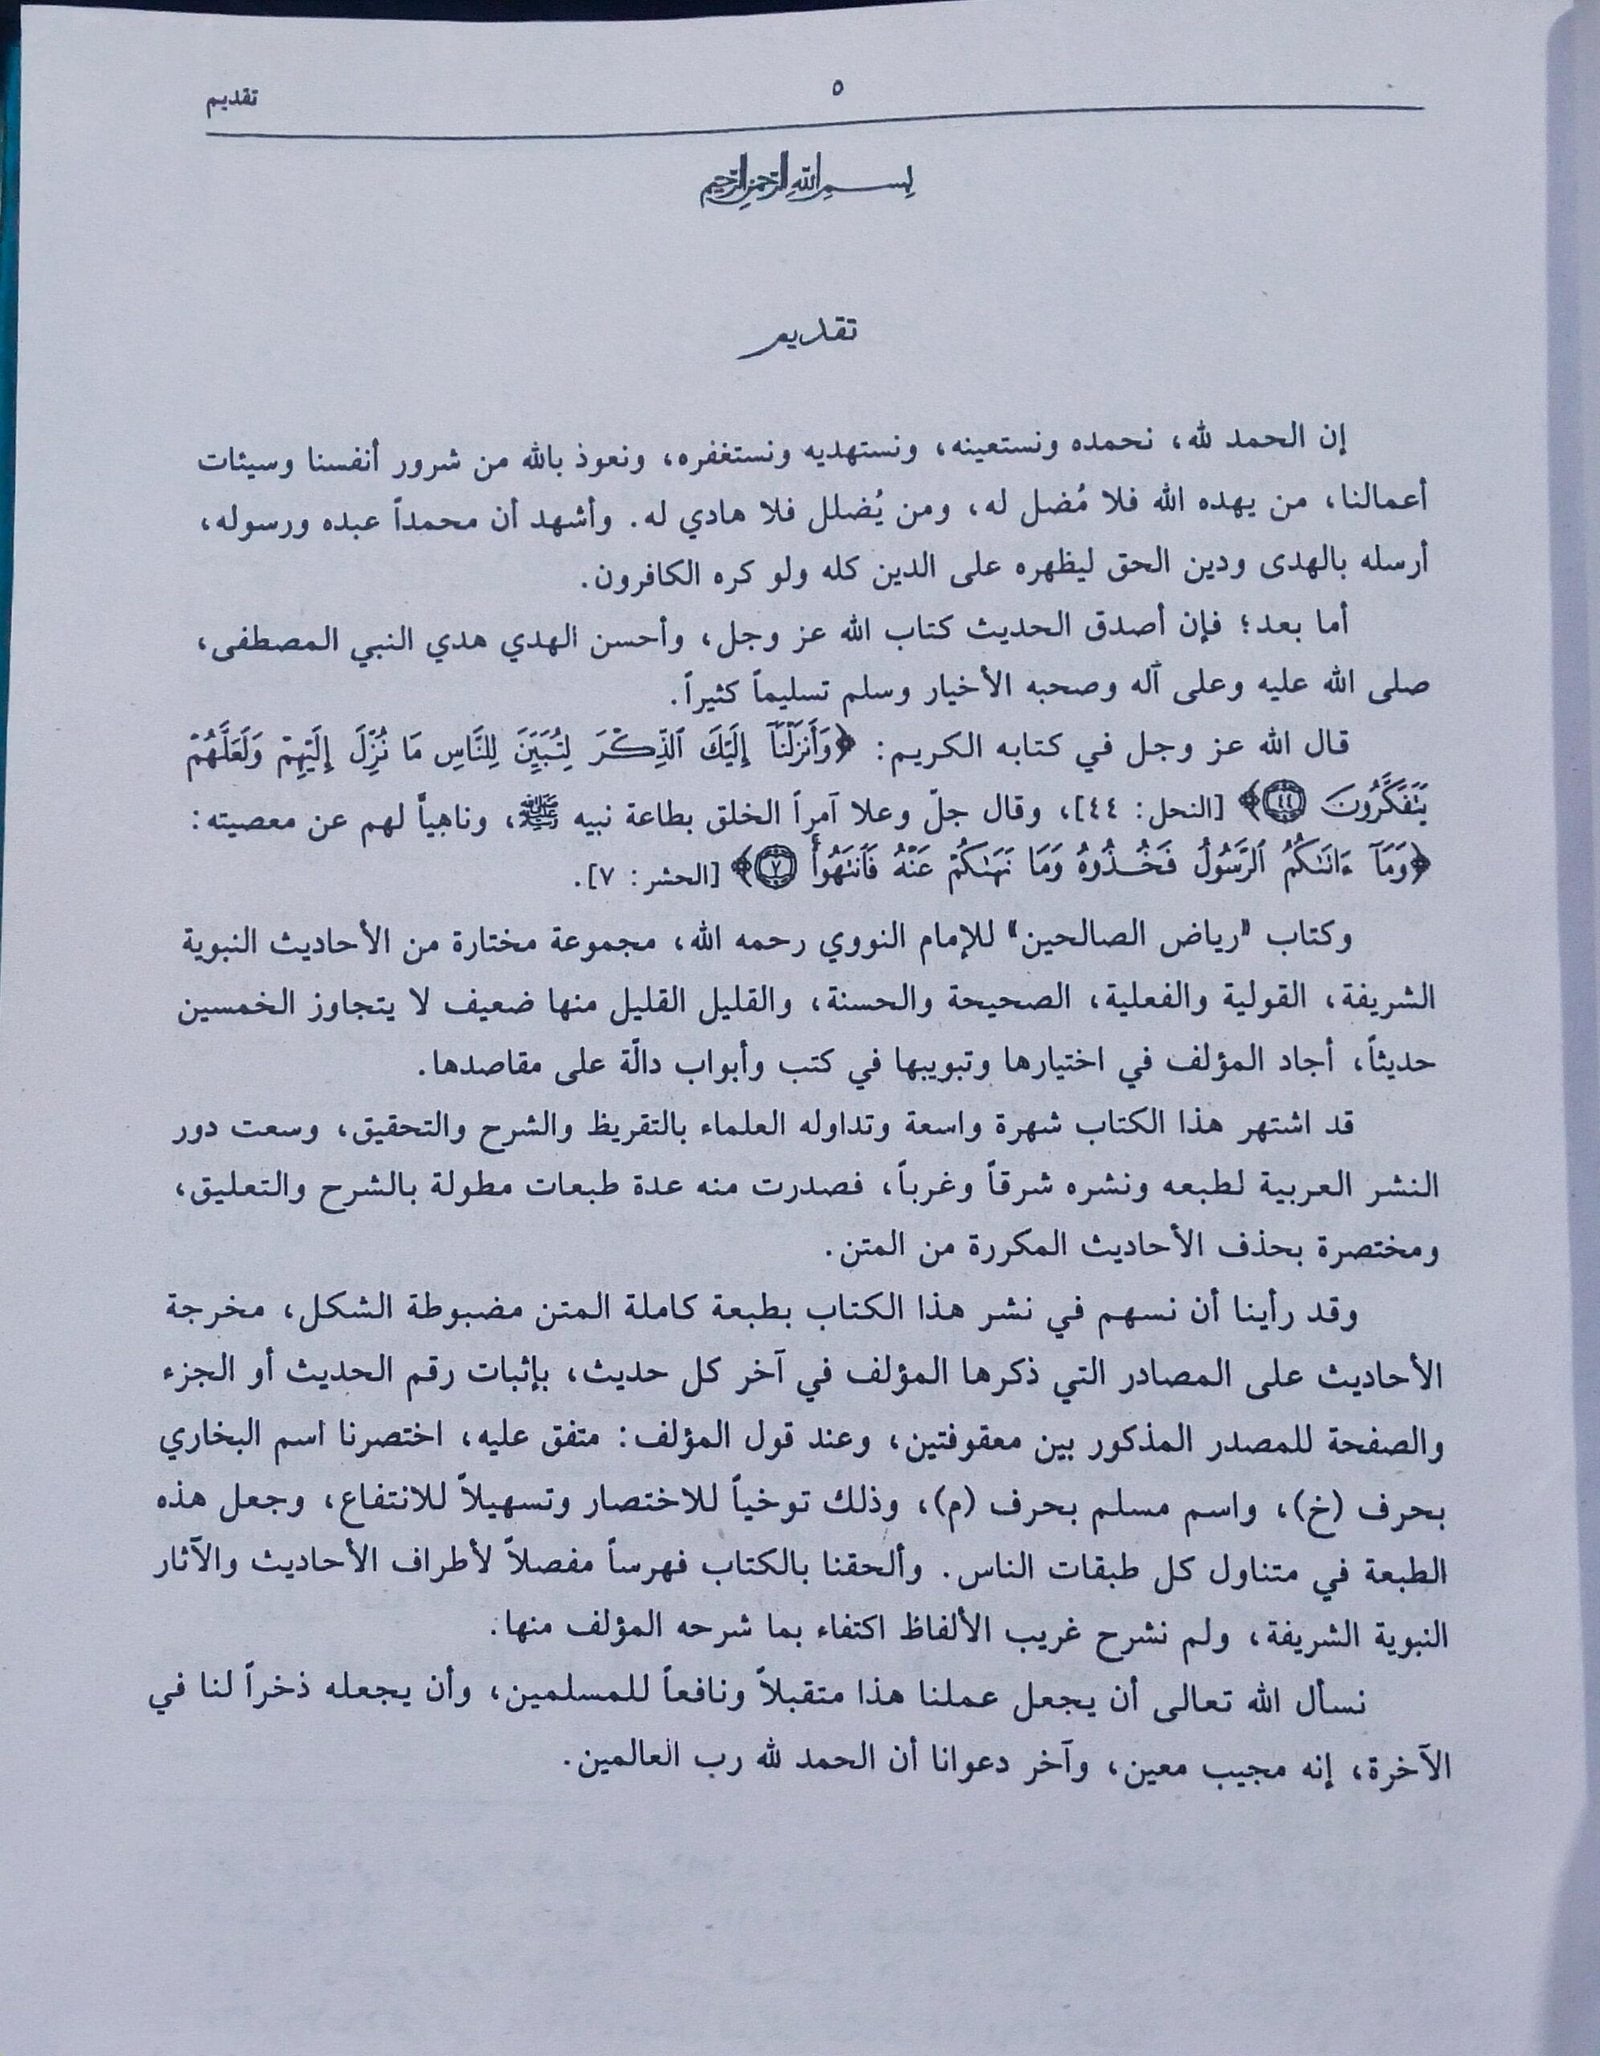 ٥
تقديم
بسم الله الرحمن الرحيم
تقديم
إن الحمد لله، نحمده ونستعينه، ونستهديه ونستغفره، ونعوذ بالله من شرور أنفسنا وسيئات
أعمالنا، من يهده الله فلا مُضل له، ومن يُضلل فلا هادي له. وأشهد أن محمداً عبده ورسوله،
أرسله بالهدى ودين الحق ليظهره على الدين كله ولو كره الكافرون.
أما بعد؛ فإن أصدق الحديث كتاب الله عز وجل، وأحسن الهدي هدي النبي المصطفى،
صلى الله عليه وعلى آله وصحبه الأخيار وسلم تسليماً كثيراً.
قال الله عز وجل في كتابه الكريم: ﴿وَأَنزَلْنَآ إِلَيْكَ ٱلذِّكْرَ لِتُبَيِّنَ لِلنَّاسِ مَا نُزِّلَ إِلَيْهِمْ وَلَعَلَّهُمْ
يَتَفَكَّرُونَ ﴿٤٤﴾﴾ [النحل: ٤٤]، وقال جلّ وعلا آمراً الخلق بطاعة نبيه ﷺ، وناهياً لهم عن معصيته:
﴿وَمَآ ءَاتَىٰكُمُ ٱلرَّسُولُ فَخُذُوهُ وَمَا نَهَىٰكُمْ عَنْهُ فَٱنتَهُوا۟ ﴿٧﴾﴾ [الحشر: ٧].
وكتاب "رياض الصالحين" للإمام النووي رحمه الله، مجموعة مختارة من الأحاديث النبوية
الشريفة، القولية والفعلية، الصحيحة والحسنة، والقليل القليل منها ضعيف لا يتجاوز الخمسين
حديثاً، أجاد المؤلف في اختيارها وتبويبها في كتب وأبواب دالّة على مقاصدها.
قد اشتهر هذا الكتاب شهرة واسعة وتداوله العلماء بالتقريظ والشرح والتحقيق، وسعت دور
النشر العربية لطبعه ونشره شرقاً وغرباً، فصدرت منه عدة طبعات مطولة بالشرح والتعليق،
ومختصرة بحذف الأحاديث المكررة من المتن.
وقد رأينا أن نسهم في نشر هذا الكتاب بطبعة كاملة المتن مضبوطة الشكل، مخرجة
الأحاديث على المصادر التي ذكرها المؤلف في آخر كل حديث، بإثبات رقم الحديث أو الجزء
والصفحة للمصدر المذكور بين معقوفتين، وعند قول المؤلف: متفق عليه، اختصرنا اسم البخاري
بحرف (خ)، واسم مسلم بحرف (م)، وذلك توخياً للاختصار وتسهيلاً للانتفاع، وجعل هذه
الطبعة في متناول كل طبقات الناس. وألحقنا بالكتاب فهرساً مفصلاً لأطراف الأحاديث والآثار
النبوية الشريفة، ولم نشرح غريب الألفاظ اكتفاء بما شرحه المؤلف منها.
نسأل الله تعالى أن يجعل عملنا هذا متقبلاً ونافعاً للمسلمين، وأن يجعله ذخراً لنا في
الآخرة، إنه مجيب معين، وآخر دعوانا أن الحمد لله رب العالمين.